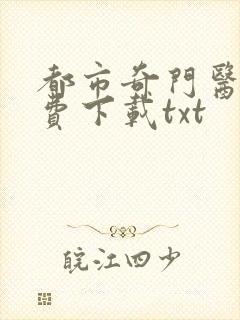 都市奇門醫
費下載txt
皖江四少